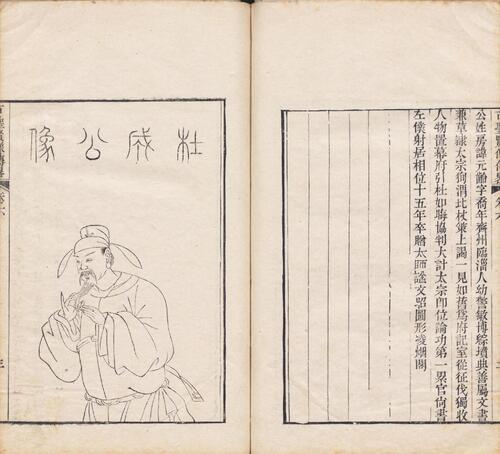 公姓房諱元齡字喬年齊州臨淄人幼警敏博綜墳典善屬文書
兼草隸太宗徇渭北杖策上謁一見如舊爲府記室從征伐獨收
人物置幕府引杜如晦協判大計太宗即位論功第一累官尚書
左僕射居相位十五年卒贈太師諡文昭圖形凌烟閣
杜成公像
三